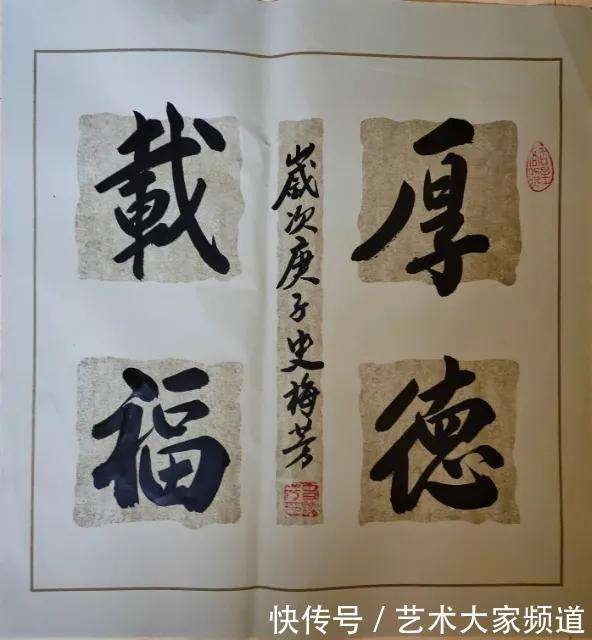 厚德
載福
歲次庚子史梅芳
快传号 / 艺术大家频道